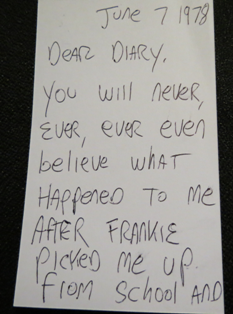 June 7 1978
Dear Diary,
You will never,
ever, ever even
believe what
Happened to me
After Frankie
picked me up
from school and